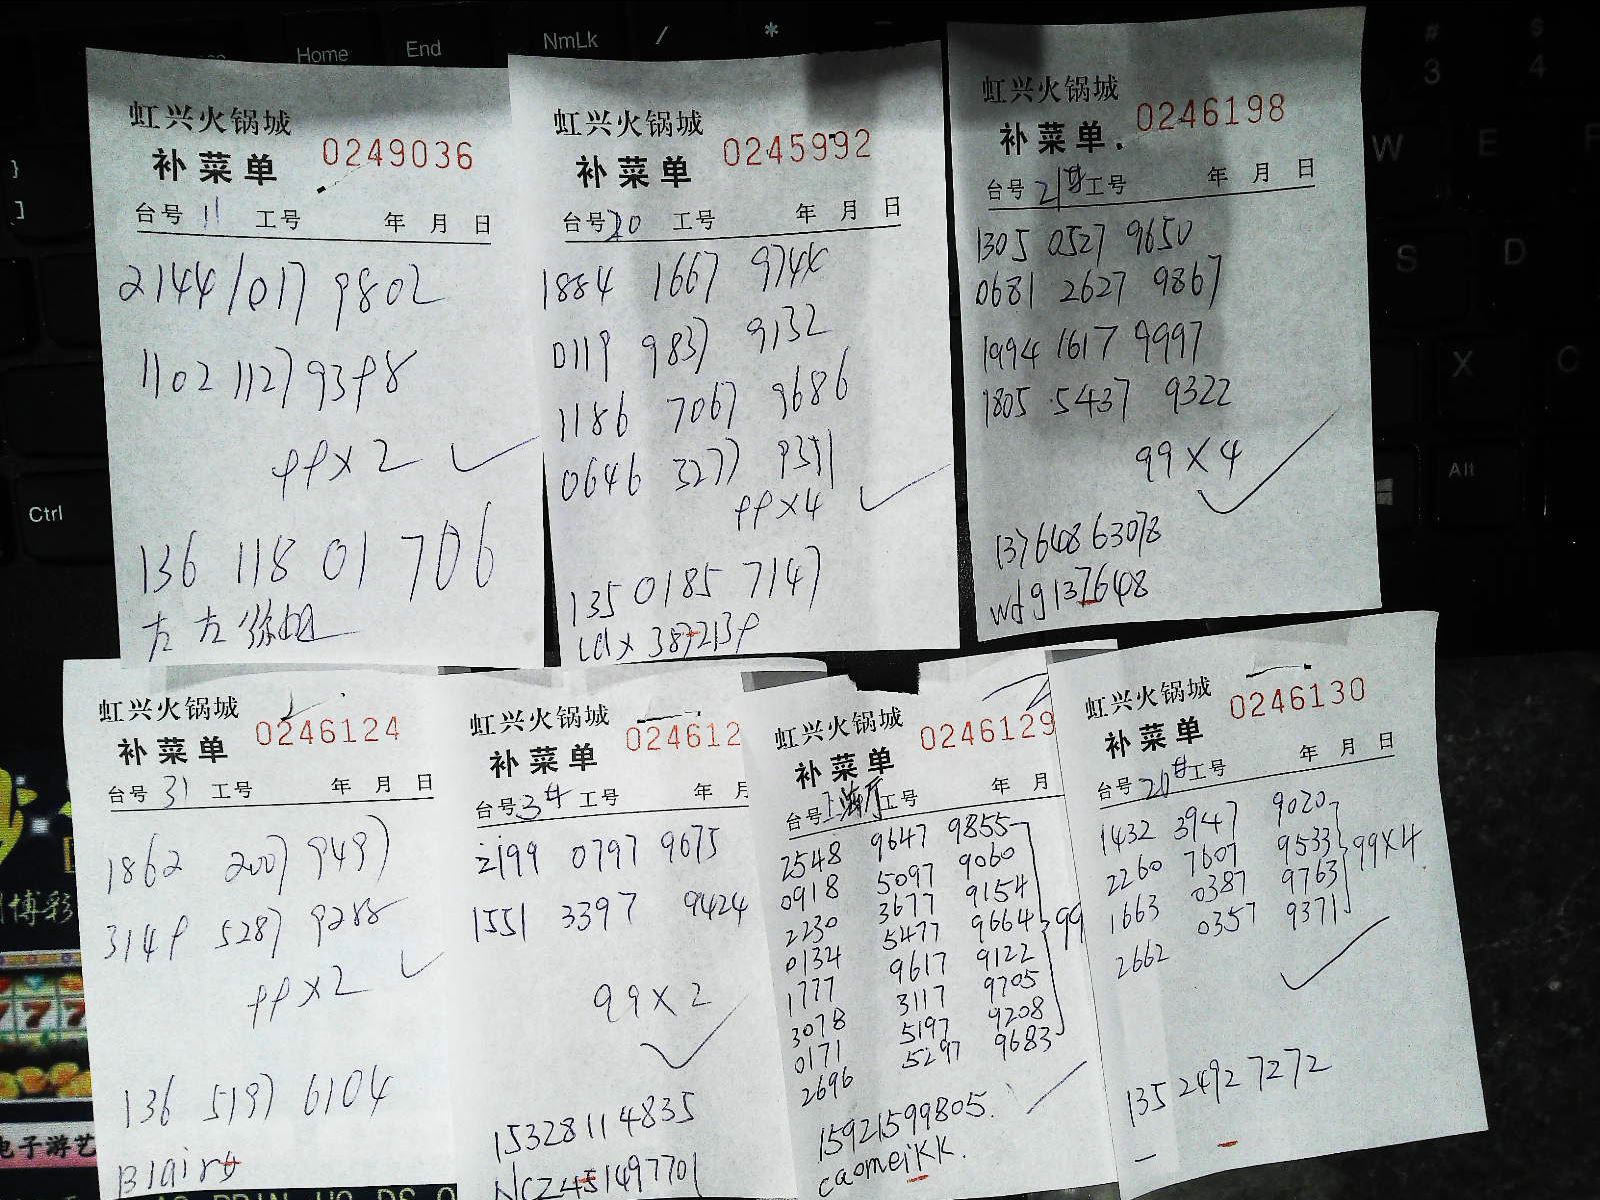 Home End NmLk / *
# 3
$ 4
} ]
W E F
S D
X C
Alt
Ctrl
虹兴火锅城
补菜单 0249036
台号 11 工号 年 月 日
2144 1017 9802
1102 1127 9398
99x2
136 118 01 706
虹兴火锅城
补菜单 0245992
台号 20 工号 年 月 日
1884 1667 974x
0119 9837 9132
1186 7067 9686
0646 3277 9391
99x4
135 0185 7147
虹兴火锅城
补菜单. 0246198
台号 工号 年 月 日
1305 0527 9650
0681 2627 9867
1994 1617 9997
1805 5437 9322
99x4
13764863078
wdg137648
虹兴火锅城
补菜单 0246124
台号 31 工号 年 月 日
1862 2007 9497
3149 5287 9288
99x2
136 5197 6104
虹兴火锅城
补菜单 024612
台号 工号 年 月
2199 0797 9675
1551 3397 9424
99x2
15328114835
虹兴火锅城
补菜单 0246129
台号 上海厅 工号 年 月
2548 9647 9855
0918 5097 9060
2230 3677 9154
0134 5477 9664 99
1777 9617 9122
3078 3117 9705
0171 5197 9208
2696 5297 9683
15921599805.
caomeiKK.
虹兴火锅城
补菜单 0246130
台号 工号 年 月 日
1432 3947 9020
2260 7607 9533 99x4
1663 0387 9763
2662 0357 9371
135 2492 7272
博彩
777
电子游艺